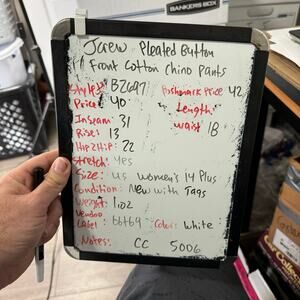 BANKERS BOX
Jcrew Pleated Button
Front Cotton Chino Pants
Style: BZ697 Poshmark Price 42
Price: 40 Length:
Inseam: 31 Waist 18
Rise: 13
Hip 2 Hip: 22
Stretch: Yes
Size: US Women's 14 Plus
Condition: New with Tags
Weight: 1.02
Vendoo
Label: 66f69 Color: White
Notes: CC 5006